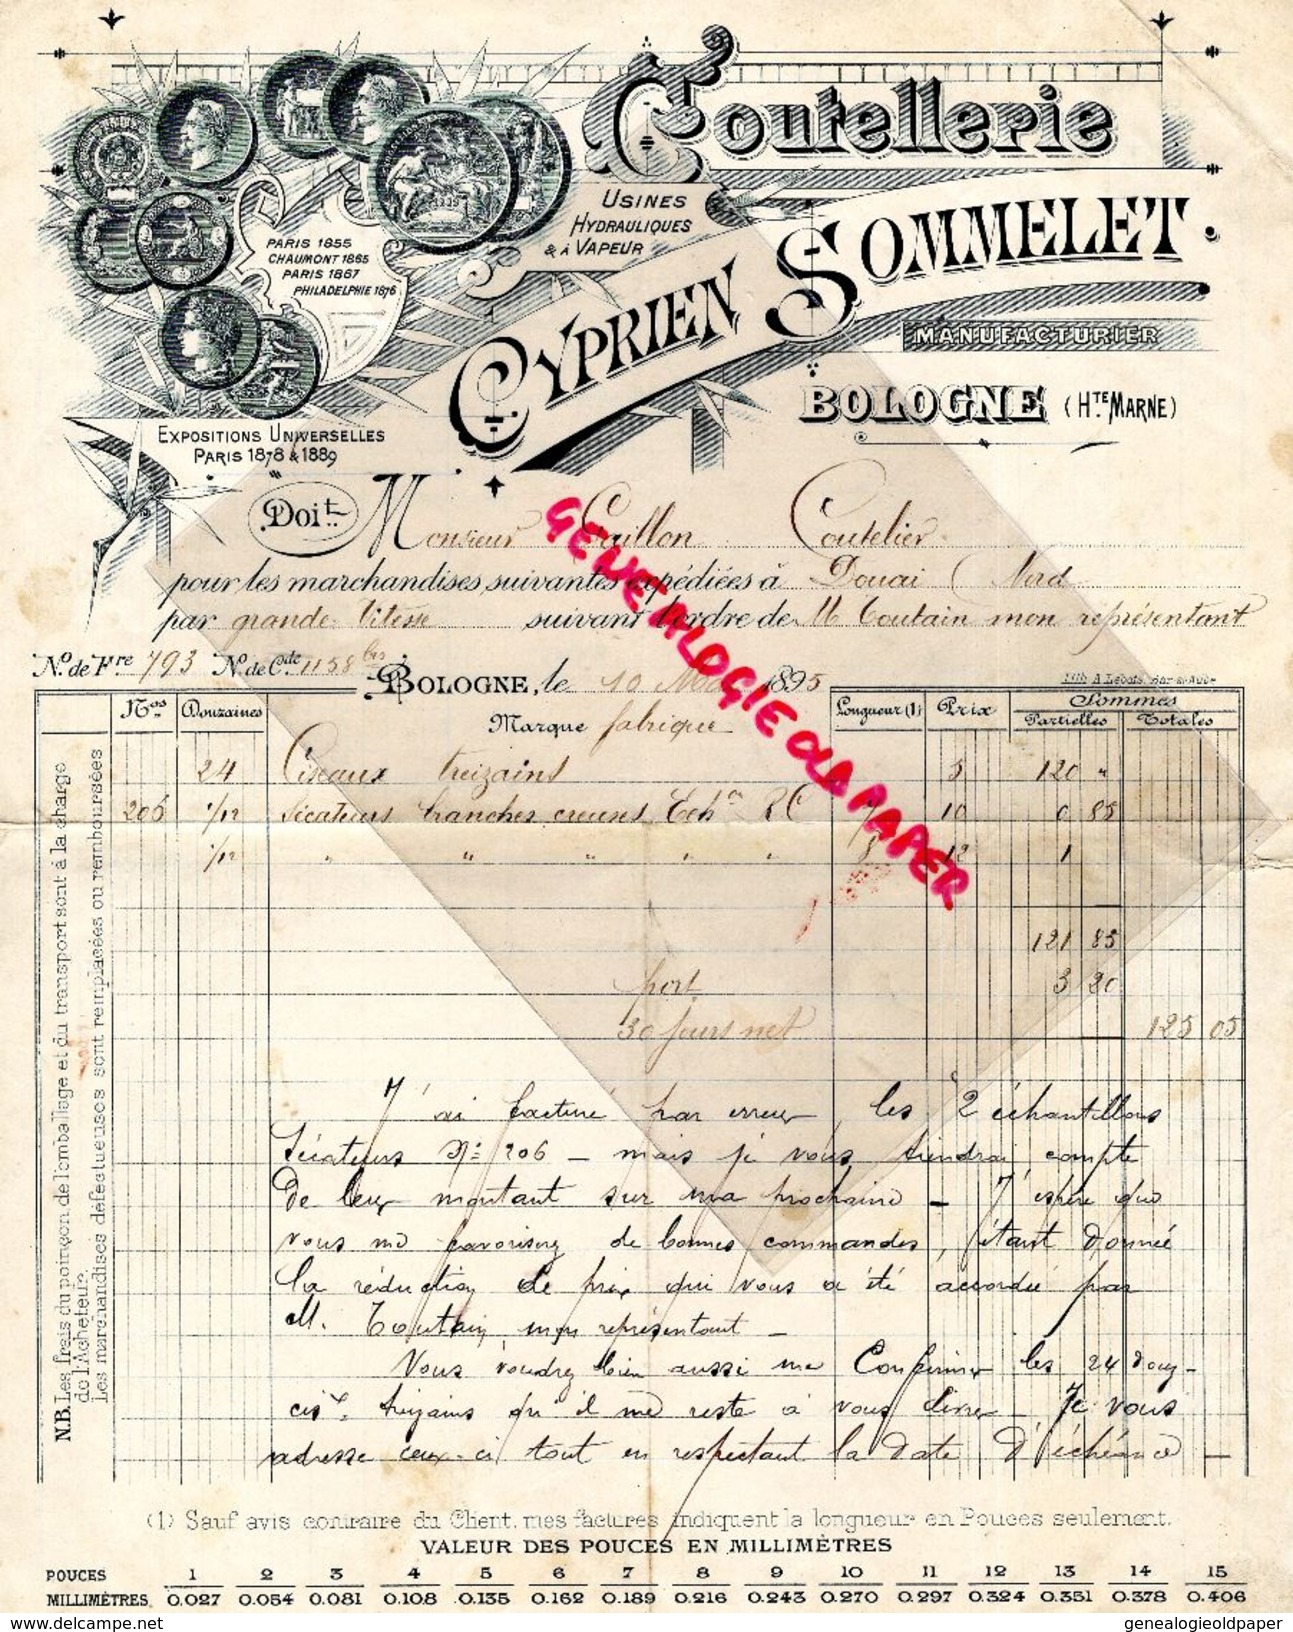 Coutellerie
USINES
HYDRAULIQUES
& À VAPEUR
CYPRIEN SOMMELET.
MANUFACTURIER
BOLOGNE (HTE MARNE)
PARIS 1855
CHAUMONT 1865
PARIS 1867
PHILADELPHIE 1876
EXPOSITIONS UNIVERSELLES
PARIS 1878 & 1889
Doit Monsieur Coutelier
pour les marchandises suivantes expédiées à Douai (Nord
par grande Vitesse suivant l'ordre de M Toutain mon représentant
No. de Fre 793 No. de Cde 1158 bis
BOLOGNE, le 10 Mai 1895
Lith. A. Lebois, Bar-s-Aube
Nos Douzaines Marque fabrique Longueur (1) Prix Sommes
Partielles Totales
24 Ciseaux treizains 5 120 "
206 1/12 sécateurs branches creuses Echon 7 10 0 85
1/12 " " " " " 8 12 1
121 85
port 3 20
30 jours net 125 05
J'ai facturé par erreur les 2 échantillons
Sécateurs No 206 - mais je vous tiendrai compte
de leur montant sur ma prochaine - J'espère que
vous me favoriserez de bonnes commandes, étant donnée
la réduction de prix qui vous a été accordée par
M. Toutain, mon représentant -
Vous voudrez bien aussi me Confirmer les 24 douz-
cisx. treizains qu'il me reste a vous livrer - Je vous
adresse ceux-ci tout en respectant la date d'échéance -
N.B. Les frais du poinçon de l'emballage et du transport sont à la charge
de l'Acheteur.
Les marchandises défectueuses sont remplacées ou remboursées
(1) Sauf avis contraire du Client, mes factures indiquent la longueur en Pouces seulement.
VALEUR DES POUCES EN MILLIMÈTRES
POUCES 1 2 3 4 5 6 7 8 9 10 11 12 13 14 15
MILLIMÈTRES. 0.027 0.054 0.081 0.108 0.135 0.162 0.189 0.216 0.243 0.270 0.297 0.324 0.351 0.378 0.406
GENEALOGIE OLD PAPER
genealogieoldpaper